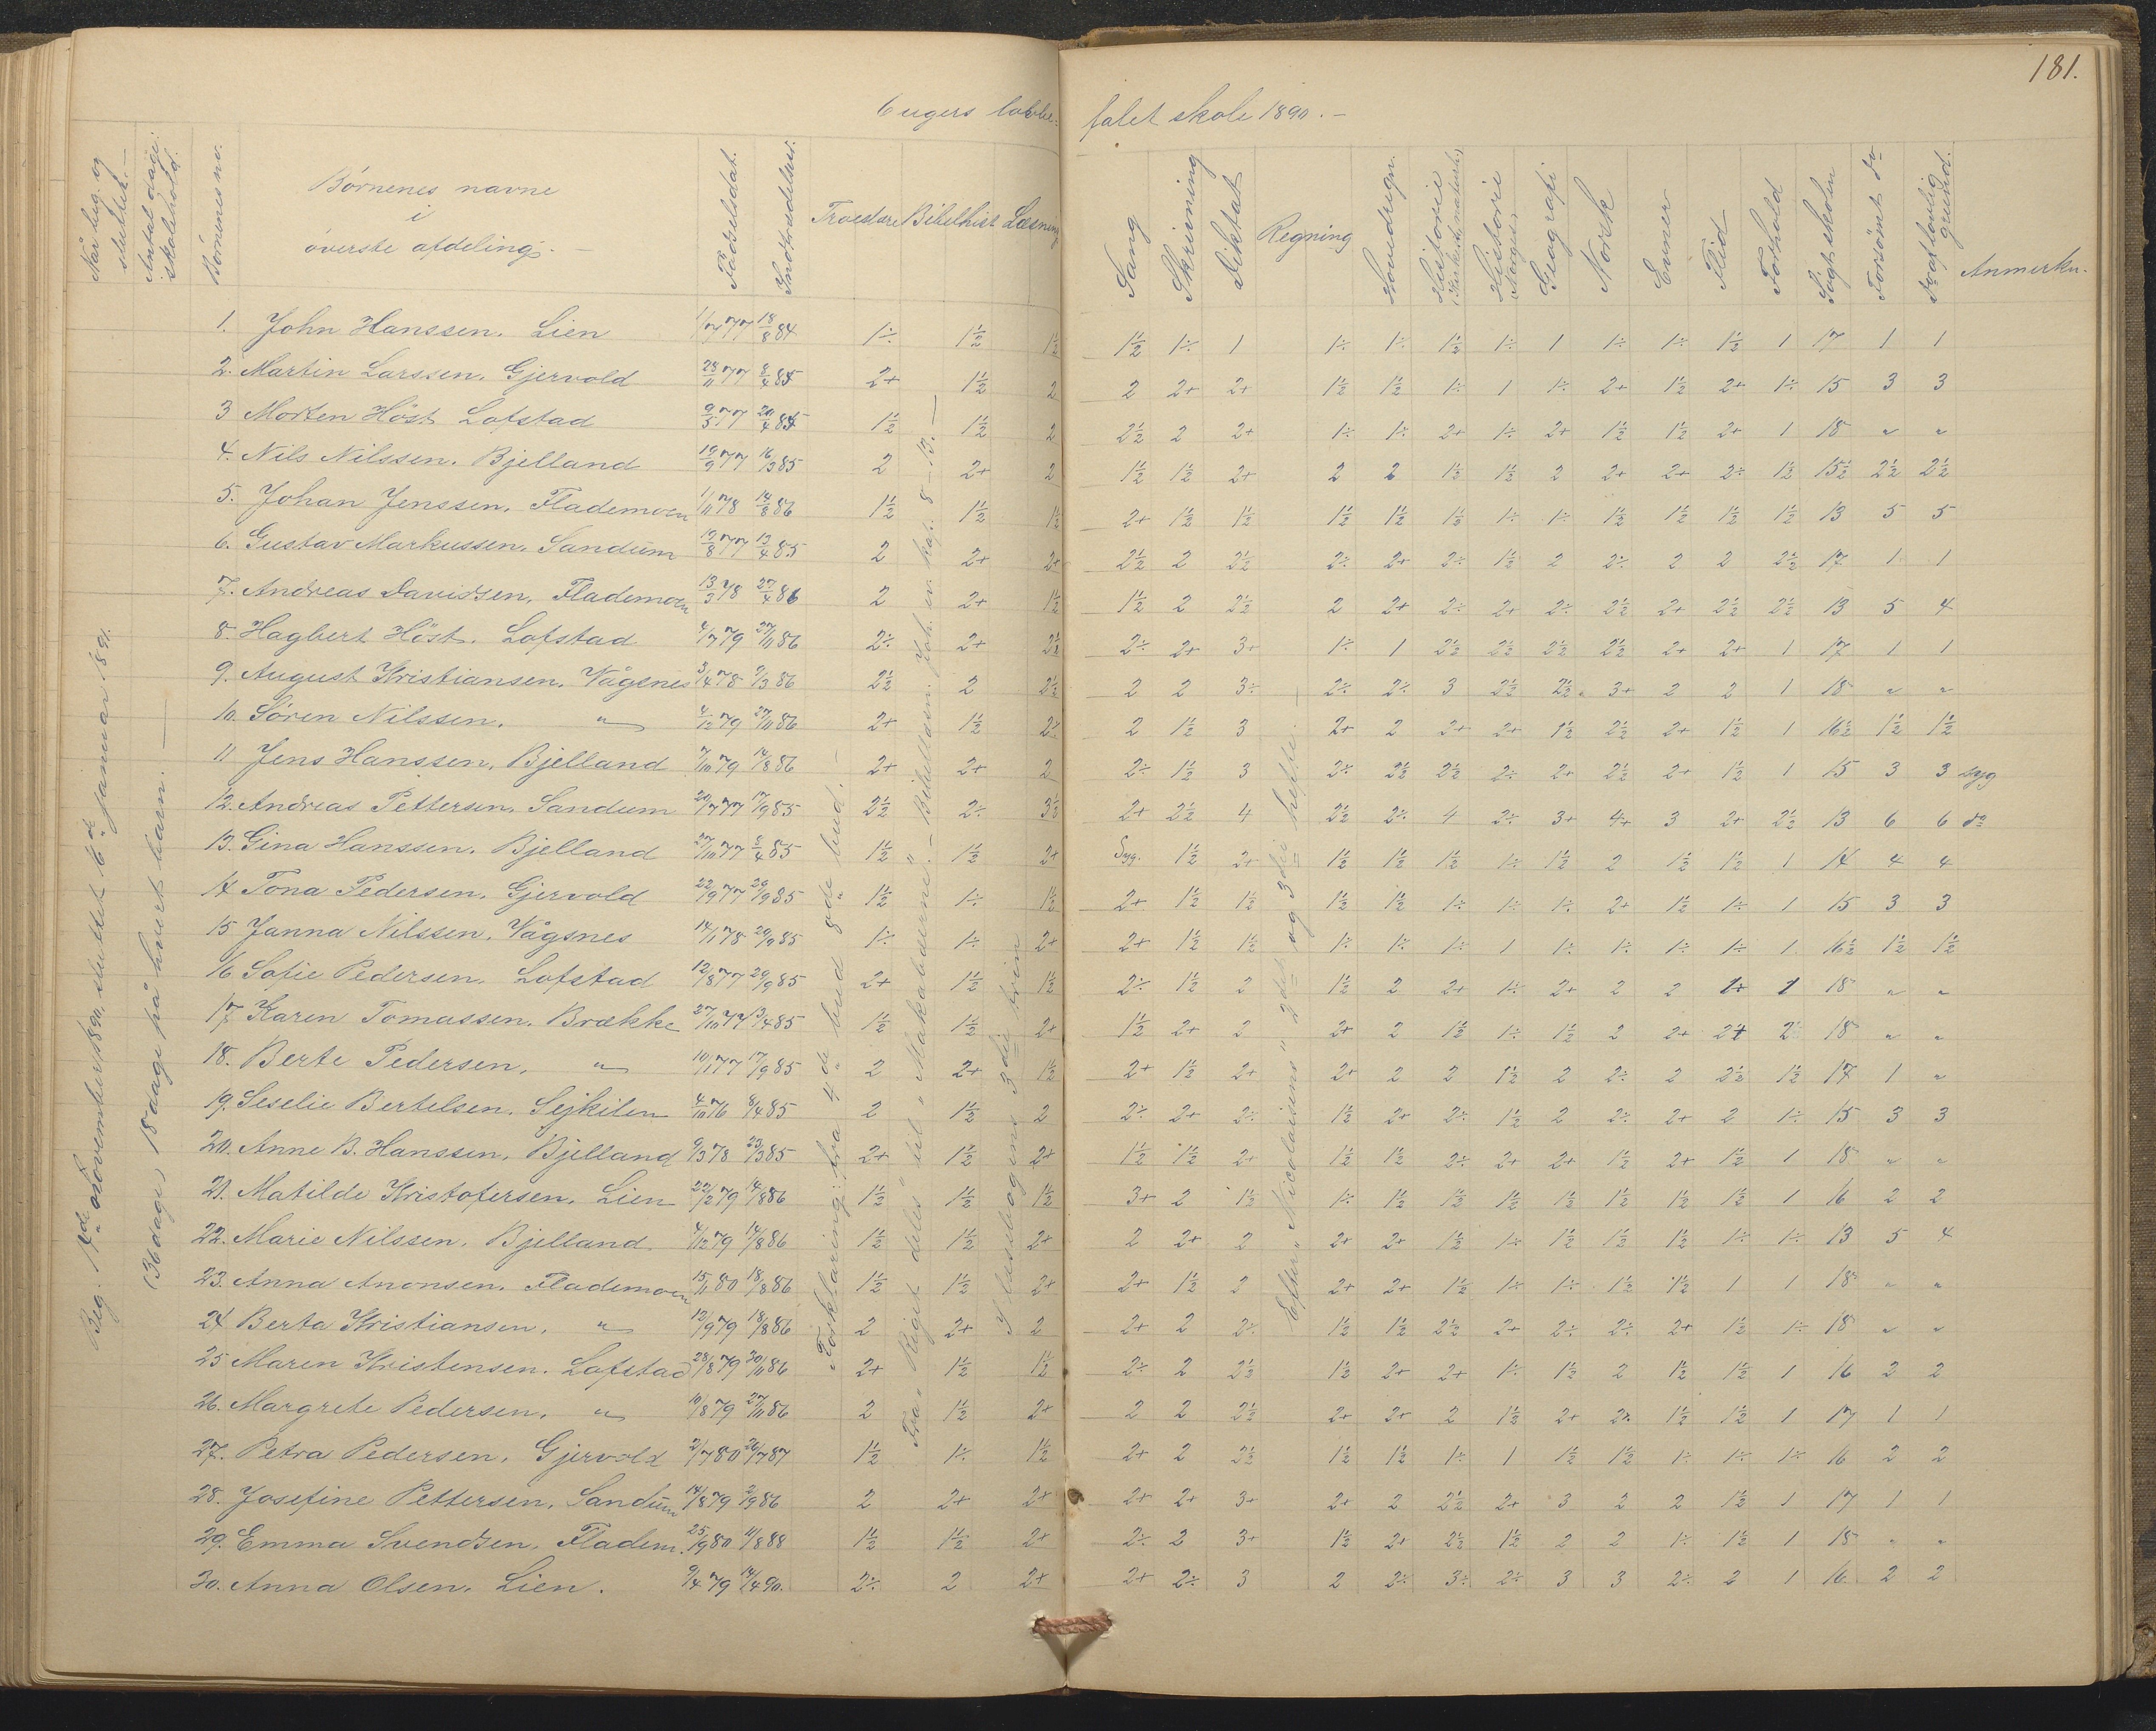 181.
6 ugers lovbe=
falet skole 1890. –
Når beg. og sluttet. –
Antal dage skolehold.
Børnenes nr.
Børnenes navne
i
øverste afdeling. –
Fødselsdat.
Indtrædelsesd.
Troeslære Bibelhist. Læsning
Sang
Skrivning
Diktat
Regning
Hovedregn.
Historie
Historie
Geografi
Norsk
Evner
Flid
Forhold
Søgt skolen
Forsømt do
Anmerkn.
1. John Hanssen. Lien 1/7 77 18/8 84 1÷ 1½ 1½ 1½ 1÷ 1 1÷ 1÷ 1½ 1÷ 1 1÷ 1÷ 1½ 1 17 1 1
2. Martin Larssen. Gjervold 28/11 77 8/4 85 2+ 1½ 2 2 2+ 2+ 1½ 1½ 1÷ 1 1÷ 2+ 1½ 2+ 1÷ 15 3 3
3 Morten Höst Lofstad 9/5 77 20/4 85 1½ 1½ 2 2½ 2 2+ 1÷ 1÷ 2+ 1÷ 2+ 1½ 1½ 2+ 1 18 „ „
4. Nils Nilssen. Bjelland 19/9 77 16/3 85 2 2+ 2 1½ 1½ 2+ 2 2 1½ 1½ 2 2+ 2+ 2÷ 1½ 15½ 2½ 2½
5. Johan Jenssen. Flademoen 1/11 78 14/8 86 1½ 1½ 1½ 2+ 1½ 1½ 1½ 1½ 1½ 1÷ 1÷ 1½ 1½ 1½ 1½ 13 5 5
6. Gustav Markussen. Sandum 19/8 77 13/4 85 2 2+ 2+ 2½ 2 2½ 2÷ 2+ 2÷ 1½ 2 2÷ 2 2 2½ 17 1 1
7. Andreas Davidsen. Flademoen 13/3 78 27/4 86 2 2+ 1½ 1½ 2 2½ 2 2+ 2÷ 2+ 2÷ 2½ 2+ 2½ 2½ 13 5 4
8. Hagbert Höst. Lofstad 4/7 79 27/11 86 2÷ 2+ 2½ 2÷ 2+ 3+ 1÷ 1 2½ 2½ 2½ 2½ 2+ 2+ 1 17 1 1
9. August Kristiansen. Vågsnes 3/4 78 9/3 86 2½ 2 2½ 2 2 3÷ 2÷ 2÷ 3 2½ 2½ 3+ 2 2 1 18 „ „
10. Søren Nilssen. „ 4/12 79 27/11 86 2+ 1½ 2½ 2 1½ 3 2+ 2 2+ 2+ 1½ 2½ 2+ 1½ 1 16½ 1½ 1½
11 Jens Hanssen. Bjelland 7/10 79 14/8 86 2+ 2+ 2 2÷ 1½ 3 2÷ 2½ 2½ 2÷ 2+ 2½ 2+ 1½ 1 15 3 3 syg
12. Andreas Pettersen. Sandum 20/7 77 17/9 85 2½ 2÷ 3½ 2+ 2½ 4 2½ 2÷ 4 2÷ 3+ 4+ 3 2+ 2½ 13 6 6 do
13. Gina Hanssen. Bjelland 27/10 77 8/4 85 1½ 1½ 2+ Syg. 1½ 2+ 1½ 1½ 1½ 1÷ 1½ 2 1½ 1½ 1 14 4 4
14 Tona Pedersen. Gjervold 22/9 77 29/9 85 1½ 1÷ 1½ 2+ 1½ 1½ 1½ 1½ 1÷ 1÷ 1÷ 2+ 1½ 1÷ 1 15 3 3
15 Janna Nilssen. Vågsnes 14/1 78 29/9 85 1÷ 1÷ 2+ 2+ 1½ 1½ 1÷ 1÷ 1÷ 1 1÷ 1÷ 1÷ 1÷ 1 16½ 1½ 1½
16 Sofie Pedersen. Lofstad 12/8 77 29/9 85 2+ 1½ 1½ 2÷ 1½ 2 1½ 2 2+ 1÷ 2+ 2 2 1÷ 1 18 „ „
17 Karen Tomassen. Brække 27/10 77 13/4 85 1½ 1½ 2+ 1½ 2+ 2 2+ 2 1½ 1÷ 1½ 2 2+ 2+ 2 18 „ „
18. Berte Pedersen. „ 10/1 77 17/9 85 2 2+ 1½ 2+ 1½ 2+ 2+ 2 2 1½ 2 2÷ 2 2½ 1½ 17 1 „
19. Seselie Bertelsen. Sejkilen 4/10 76 8/4 85 2 1½ 2 2÷ 2+ 2÷ 1½ 2+ 2÷ 1½ 2 2÷ 2+ 2 1÷ 15 3 3
20. Anne B. Hanssen. Bjelland 9/3 78 23/3 85 2+ 1½ 2+ 1½ 1½ 2+ 1½ 1½ 2÷ 2+ 2+ 1½ 2+ 1½ 1 18 „ „
21. Matilde Kristofersen. Lien 22/2 79 14/8 86 1½ 1½ 1½ 3+ 2 1½ 1÷ 1½ 1½ 1½ 1½ 1½ 1½ 1½ 1 16 2 2
22. Marie Nilssen. Bjelland. 4/12 79 14/8 86 1½ 1½ 2+ 2 2+ 2 2+ 2+ 1½ 1÷ 1½ 1½ 1½ 1÷ 1÷ 13 5 4
23. Anna Anonsen. Flademoen 15/11 80 18/8 86 1½ 1½ 2+ 2+ 1½ 2 2+ 2+ 1½ 1÷ 1÷ 1½ 1½ 1 1 18 „ „
24 Berta Kristiansen. „ 12/9 79 18/8 86 2 2+ 2 2+ 2 2÷ 1½ 1½ 2½ 2+ 2÷ 2÷ 2+ 1½ 1÷ 18 „ „
25 Maren Kristensen. Lofstad 28/8 79 30/11 86 2+ 1½ 1½ 2÷ 2 2½ 1½ 2+ 2+ 1÷ 1½ 2 1½ 1½ 1 16 2 2
26. Margrete Pedersen. „ 10/8 79 27/11 86 2 1½ 2+ 2 2 2½ 2+ 2+ 2 1½ 2+ 2÷ 1½ 1½ 1 17 1 1
27. Petra Pedersen. Gjervold 2/7 80 26/7 87 1½ 1÷ 1½ 2+ 2 2½ 1½ 1½ 1÷ 1 1½ 1½ 1÷ 1÷ 1÷ 16 2 2
28. Josefine Pettersen. Sandum 14/8 79 2/9 86 2 2+ 2+ 2+ 2+ 3+ 2+ 2 2½ 2+ 3 2 2 1½ 1 17 1 1
29. Emma Svendsen. Fladem. 25/9 80 11/8 88 1½ 1½ 2+ 2÷ 2 3+ 1½ 2+ 2½ 1½ 2 2 1÷ 1½ 1 18 „ „
30. Anna Olsen. Lien. 9/4 79 14/4 90. 2÷ 2 2+ 2+ 2÷ 3 2 2÷ 3÷ 2÷ 3 3 2÷ 2 1 16 2 2
Beg. 17de november 1890, sluttet 6te januar 1891.
(36 dage) 18 dage på hvert barn. –
Forklaring: fra 4de bud – 8de bud. –
Fra „Riget deles" til „Makabæerne". – Bibellæsn. Joh. ev. kap. 8 – 13. –
I læsebogens 3die trin
Efter „Nicolaisens" 2det og 3die hefte. –